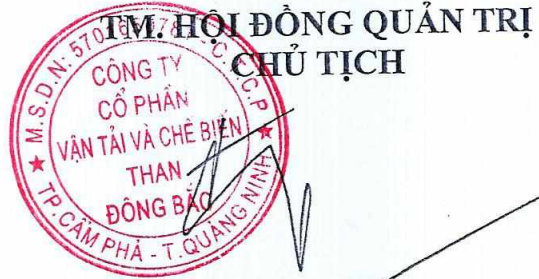 TM. HỘI ĐỒNG QUẢN TRỊ
CHỦ TỊCH
M.S.D.N: C.T.C.P
CÔNG TY
CỔ PHẦN
VẬN TẢI VÀ CHẾ BIẾN
THAN
ĐÔNG BẮC
TP. CẨM PHẢ - T. QUẢNG NINH